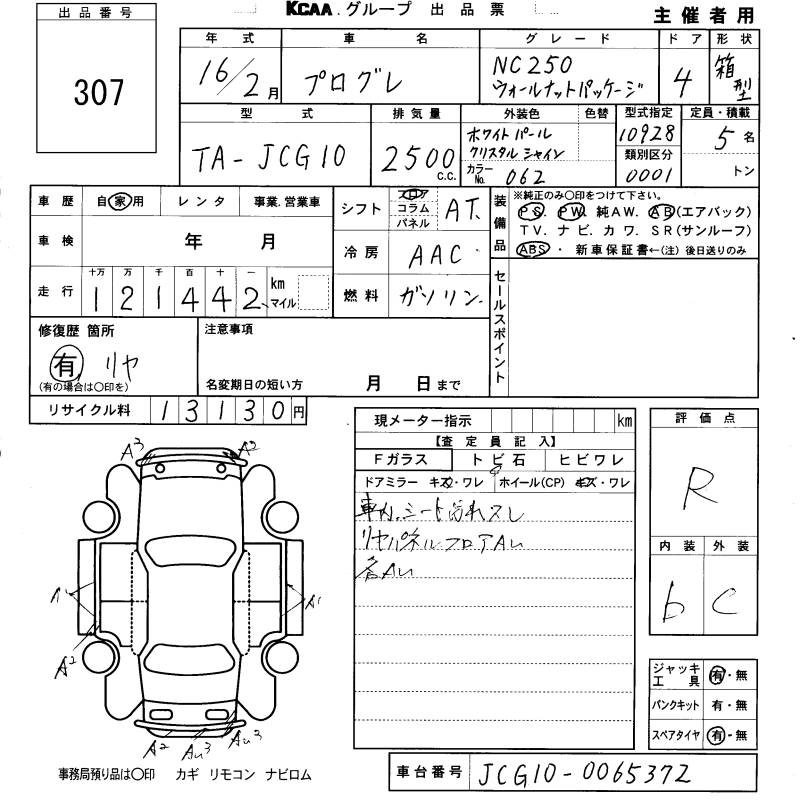 出品番号
307
KCAA.グループ 出品票
主催者用
年式
16/2月
車名
プログレ
グレード
NC250
ウォールナットパッケージ
ドア
4
形状
箱型
型式
TA-JCG10
排気量
2500 c.c.
外装色
ホワイトパール
クリスタルシャイン
色替
カラーNo. 062
型式指定
10928
類別区分
0001
定員・積載
5名
トン
車歴
自家用
レンタ
事業.営業車
車検
年 月
走行
十万 万 千 百 十 一
1 2 1 4 4 2
km
マイル
シフト
フロア
コラム
パネル
AT.
冷房
AAC
燃料
ガソリン.
装備品
※純正のみ〇印をつけて下さい。
PS. PW. 純AW. AB(エアバック)
TV. ナビ. カワ. SR(サンルーフ)
ABS・新車保証書←(注) 後日送りのみ
セールスポイント
修復歴 箇所
有 リヤ
(有の場合は〇印を)
注意事項
名変期日の短い方 月 日まで
リサイクル料
13130円
現メーター指示
km
【査定員記入】
Fガラス
トビ石
ヒビワレ
ドアミラー キズ・ワレ
ホイール(CP) キズ・ワレ
車内.シート汚れスレ
リヤパネルフロアAu
各Au
評価点
R
内装
外装
b
C
ジャッキ
工具
有・無
パンクキット
有・無
スペアタイヤ
有・無
A3
A2
A1
A1
A2
A2
Au3
Au3
事務局預り品は〇印 カギ リモコン ナビロム
車台番号
JCG10-0065372